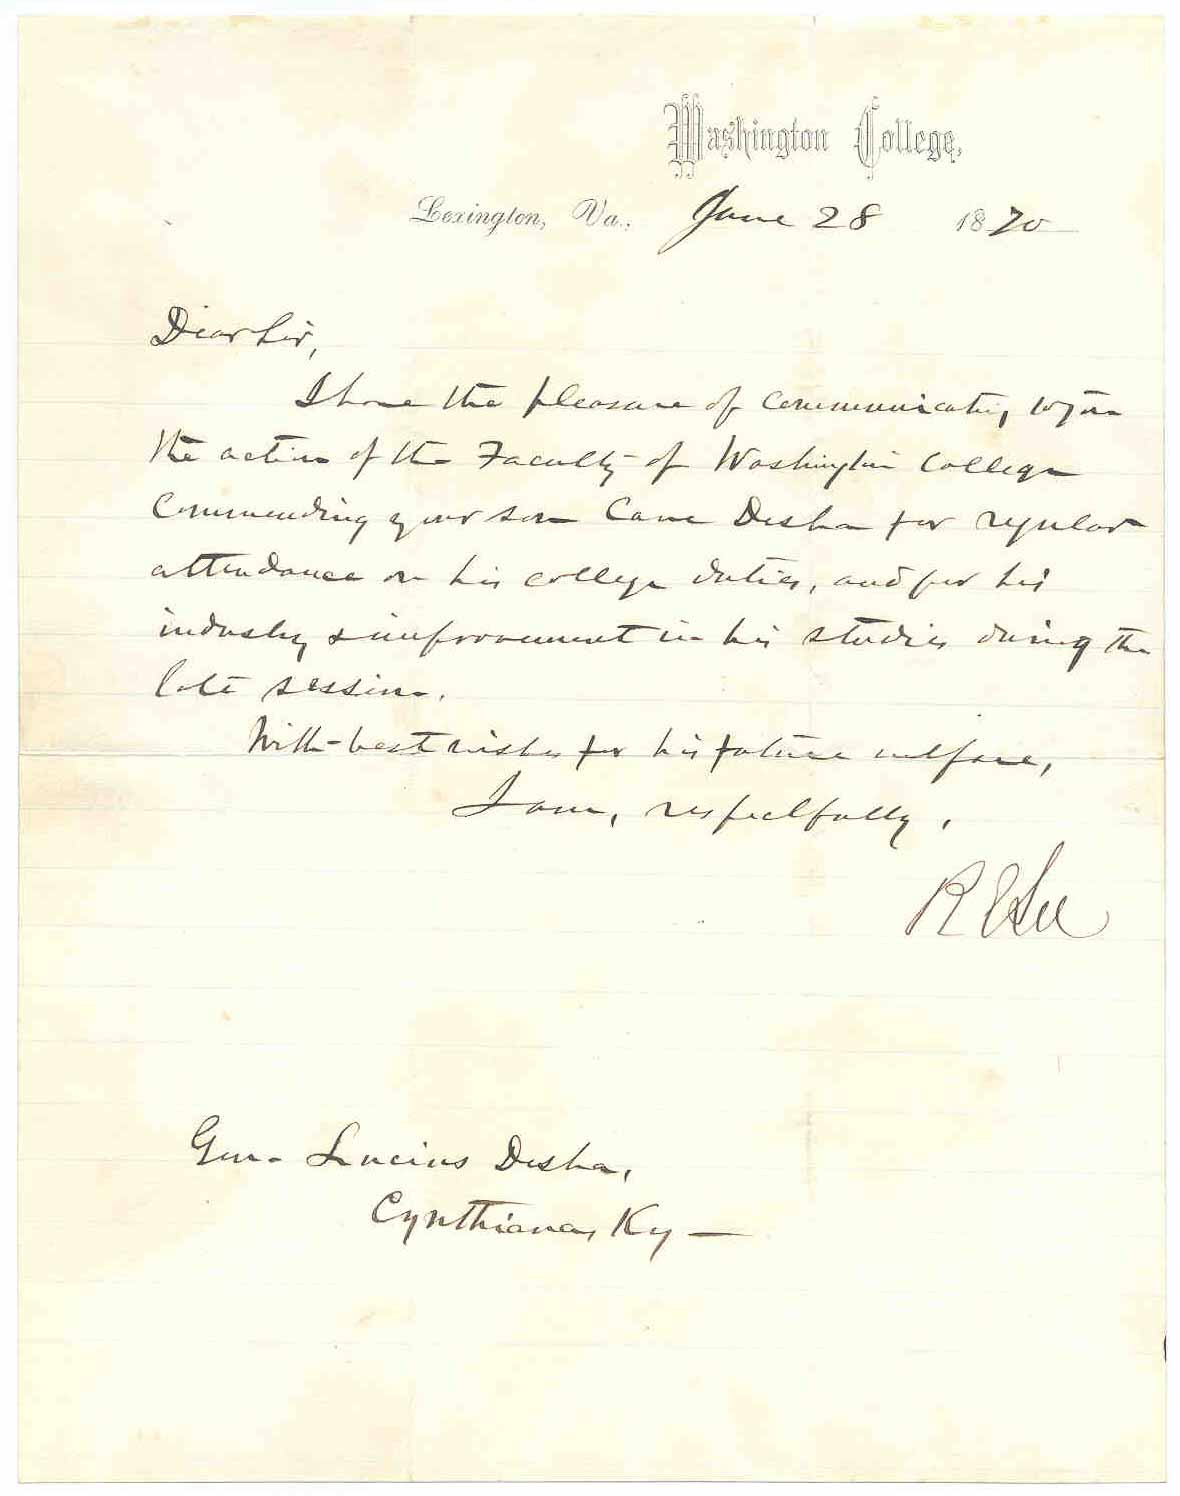 Washington College,
Lexington, Va.: June 28 1870
Dear Sir,
I have the pleasure of communicating to you
the action of the Faculty of Washington College
commending your son Cave Desha for regular
attendance on his college duties, and for his
industry & improvement in his studies during the
late session.
With best wishes for his future welfare,
I am, respectfully,
R E Lee
Gen. Lucius Desha,
Cynthiana, Ky —